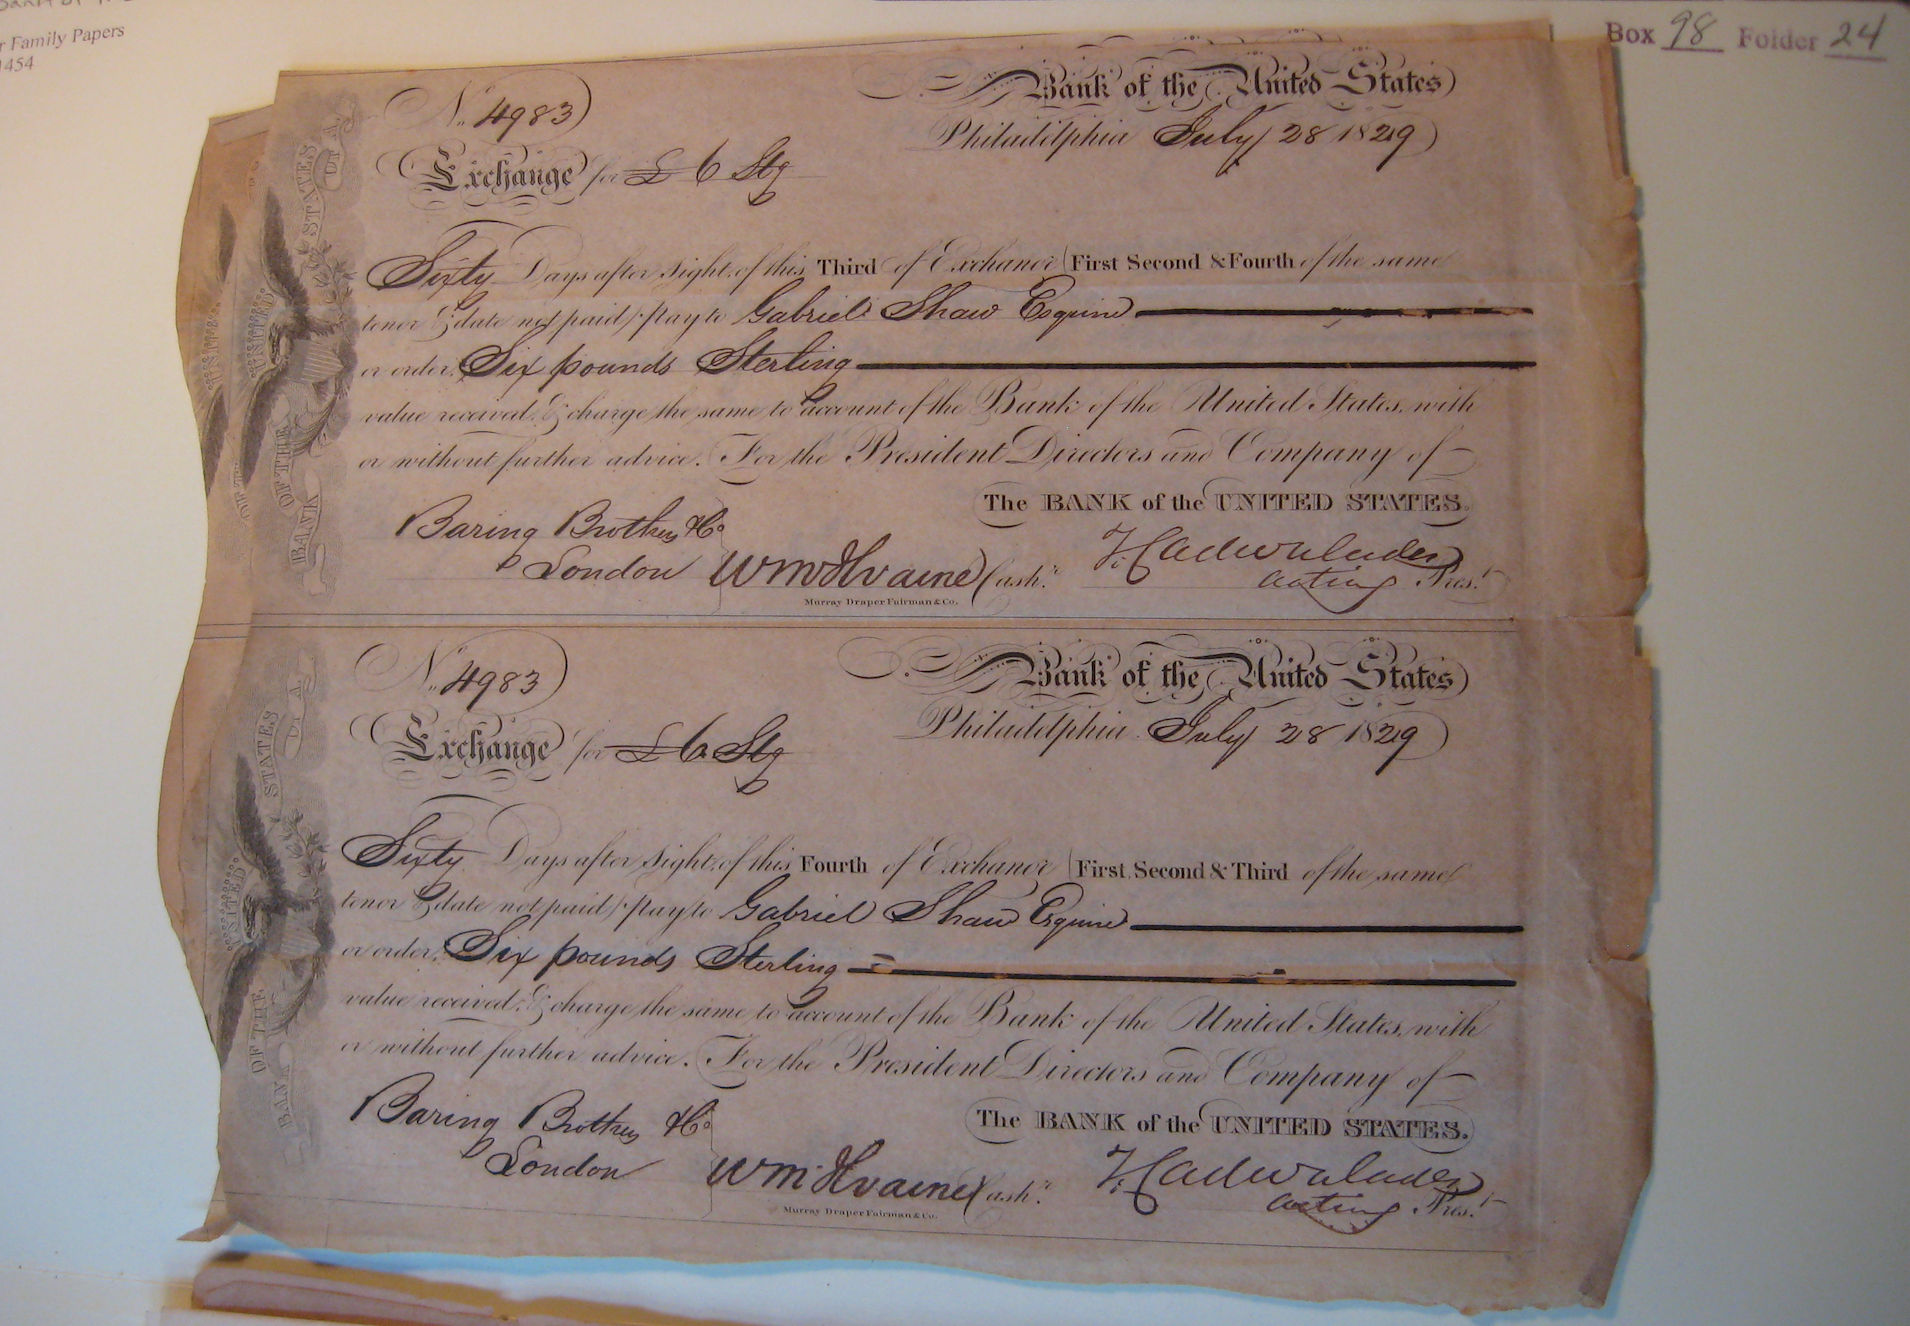 r Family Papers
1454
Box 98 Folder 24
No. 4983
Bank of the United States
Philadelphia July 28 1829
Exchange for £ 6 Stg
Sixty Days after Sight of this Third of Exchange (First Second & Fourth of the same
tenor & date not paid) Pay to Gabriel Shaw Esquire
or order, Six pounds Sterling
value received, & charge the same to account of the Bank of the United States, with
or without further advice. For the President Directors and Company of
The BANK of the UNITED STATES.
Baring Brothers & Co
London
W McIlvaine Cashr.
T Cadwalader
acting Prest.
Murray Draper Fairman & Co.
BANK OF THE UNITED STATES OF A.
No. 4983
Bank of the United States
Philadelphia July 28 1829
Exchange for £ 6 Stg
Sixty Days after Sight of this Fourth of Exchange (First, Second & Third of the same
tenor & date not paid) Pay to Gabriel Shaw Esquire
or order, Six pounds Sterling
value received, & charge the same to account of the Bank of the United States, with
or without further advice. For the President Directors and Company of
The BANK of the UNITED STATES.
Baring Brothers & Co
London
W McIlvaine Cashr.
T Cadwalader
acting Prest.
Murray Draper Fairman & Co.
BANK OF THE UNITED STATES OF A.